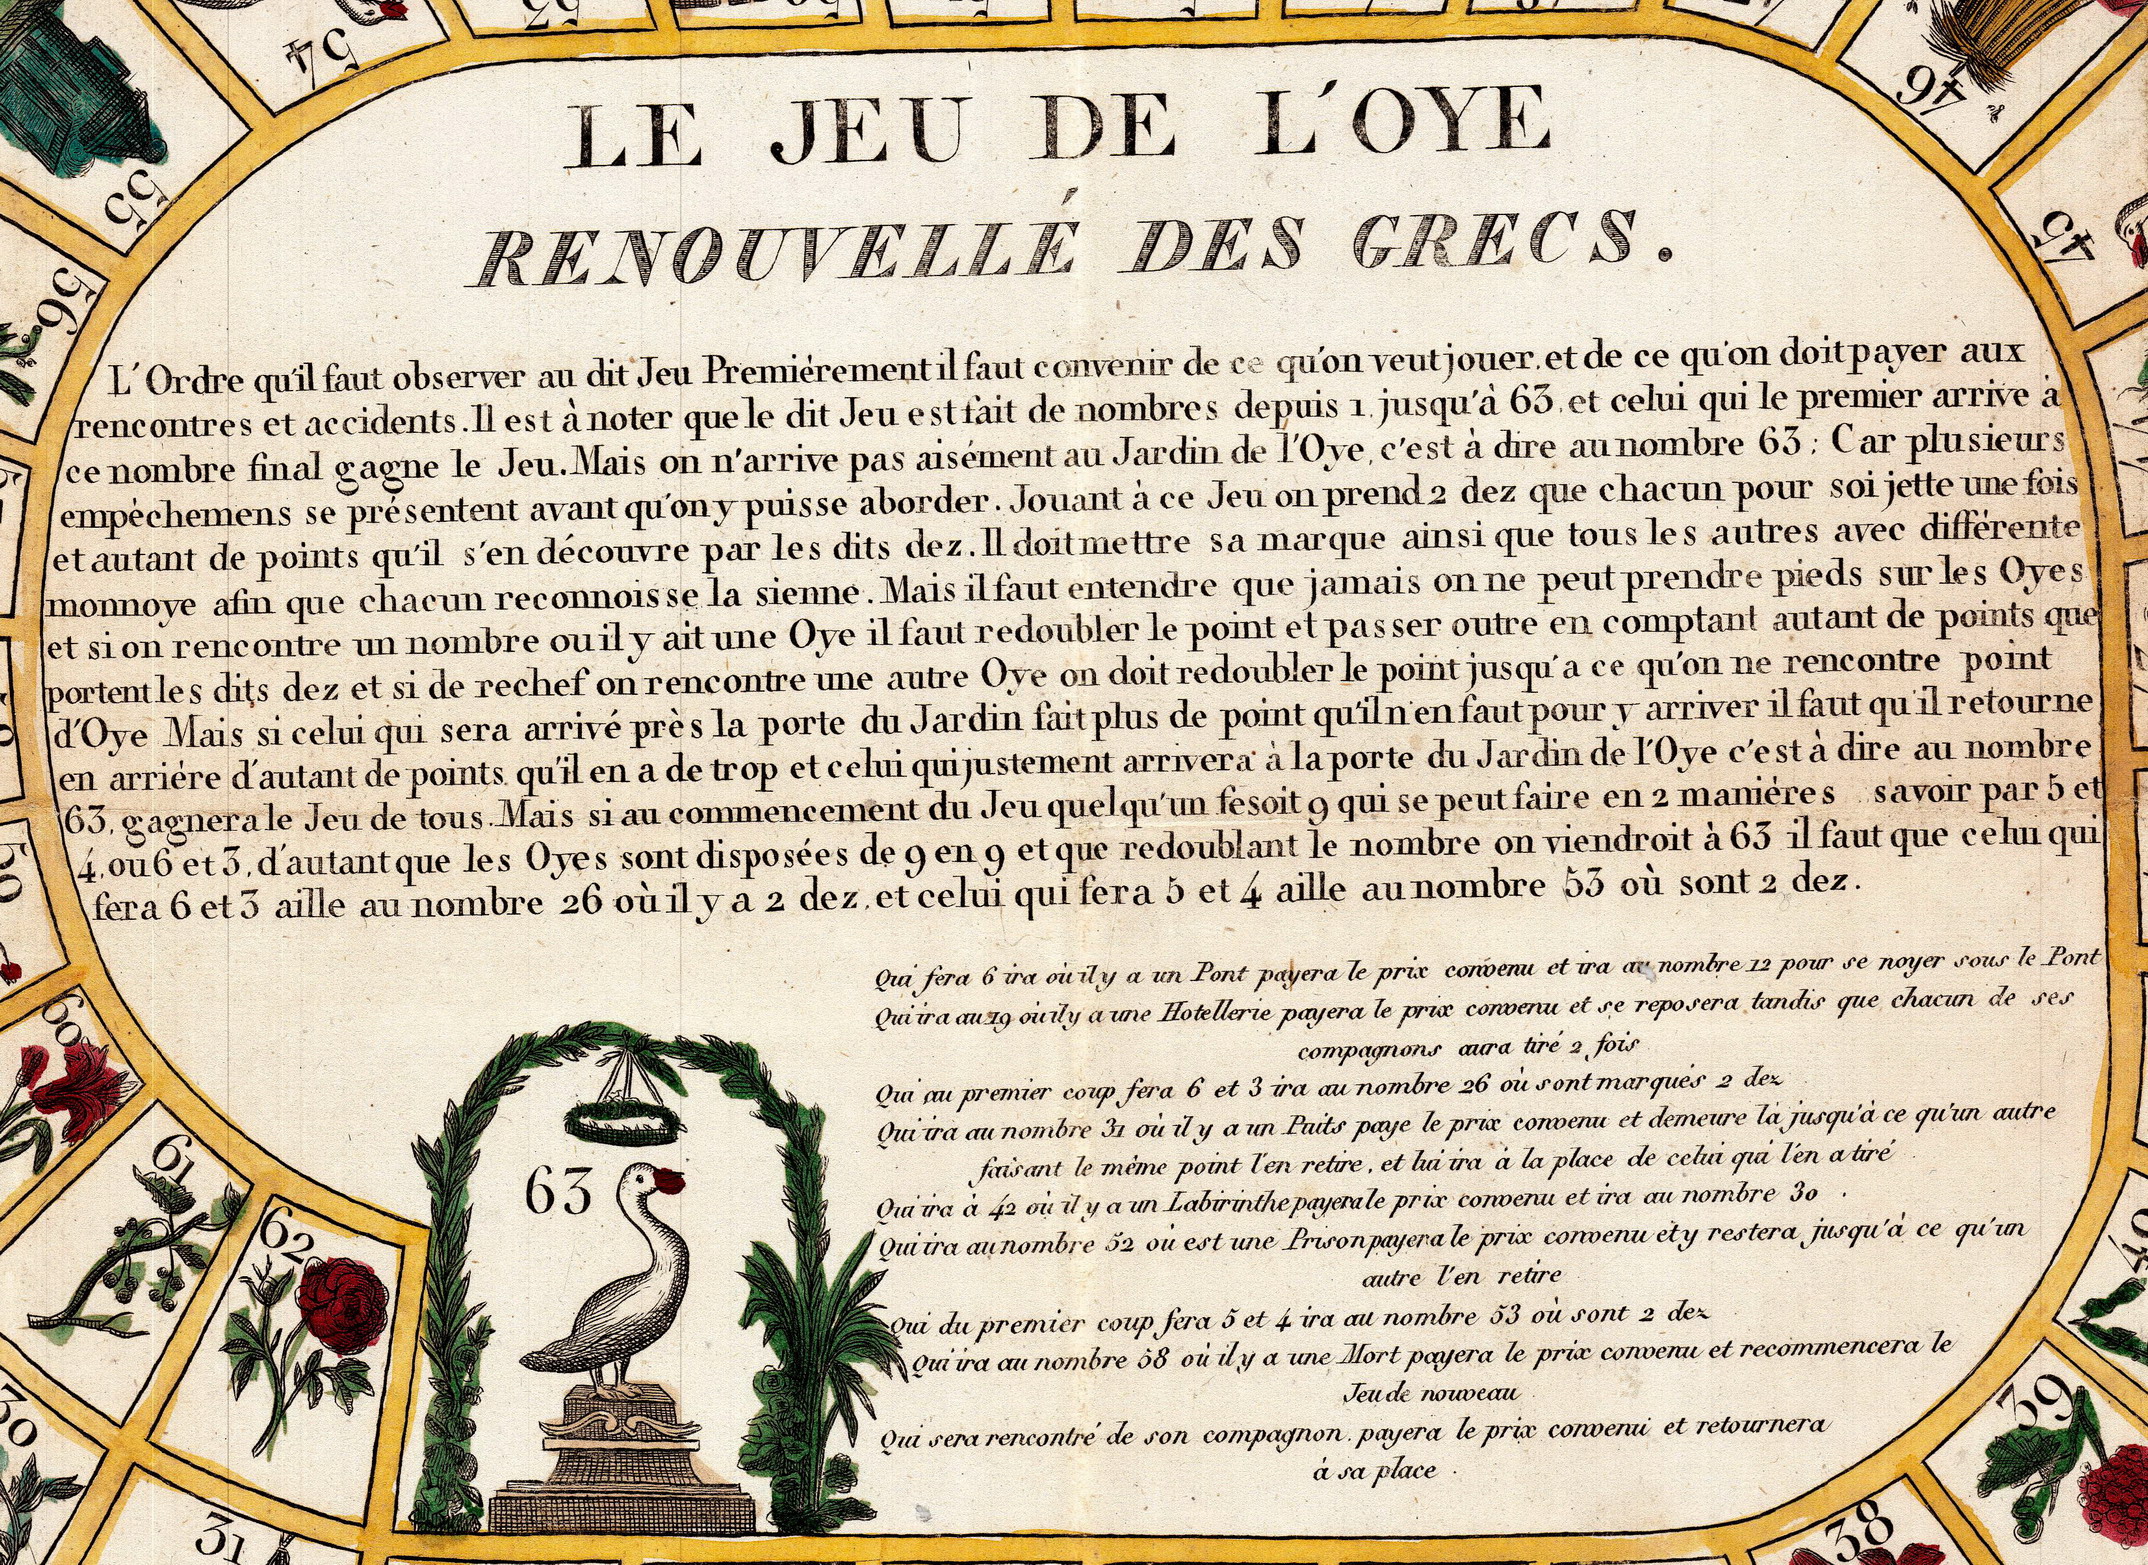 LE JEU DE L'OYE
RENOUVELLÉ DES GRECS.
L'Ordre qu'il faut observer au dit Jeu Premiérement il faut convenir de ce qu'on veut jouer, et de ce qu'on doit payer aux
rencontres et accidents. Il est à noter que le dit Jeu est fait de nombres depuis 1. jusqu'à 63. et celui qui le premier arrive à
ce nombre final gagne le Jeu. Mais on n'arrive pas aisément au Jardin de l'Oye, c'est à dire au nombre 63 ; Car plusieurs
empèchemens se présentent avant qu'on y puisse aborder. Jouant à ce Jeu on prend 2 dez que chacun pour soi jette une fois
et autant de points qu'il s'en découvre par les dits dez. Il doit mettre sa marque ainsi que tous les autres avec différente
monnoye afin que chacun reconnoisse la sienne. Mais il faut entendre que jamais on ne peut prendre pieds sur les Oyes
et si on rencontre un nombre ou il y ait une Oye il faut redoubler le point et passer outre en comptant autant de points que
portent les dits dez et si de rechef on rencontre une autre Oye on doit redoubler le point jusqu'a ce qu'on ne rencontre point
d'Oye Mais si celui qui sera arrivé près la porte du Jardin fait plus de point qu'il n'en faut pour y arriver il faut qu'il retourne
en arriére d'autant de points qu'il en a de trop et celui qui justement arrivera à la porte du Jardin de l'Oye c'est à dire au nombre
63, gagnera le Jeu de tous. Mais si au commencement du Jeu quelqu'un fesoit 9 qui se peut faire en 2 maniéres savoir par 5 et
4, ou 6 et 3, d'autant que les Oyes sont disposées de 9 en 9 et que redoublant le nombre on viendroit à 63 il faut que celui qui
fera 6 et 3 aille au nombre 26 où il y a 2 dez, et celui qui fera 5 et 4 aille au nombre 53 où sont 2 dez.
Qui fera 6 ira où il y a un Pont payera le prix convenu et ira au nombre 12 pour se noyer sous le Pont
Qui ira au 19 où il y a une Hotellerie payera le prix convenu et se reposera tandis que chacun de ses
compagnons aura tiré 2 fois
Qui au premier coup fera 6 et 3 ira au nombre 26 où sont marqués 2 dez
Qui ira au nombre 31 où il y a un Puits paye le prix convenu et demeure là jusqu'à ce qu'un autre
faisant le même point l'en retire, et lui ira à la place de celui qui l'en a tiré
Qui ira à 42 où il y a un Labirinthe payera le prix convenu et ira au nombre 30 .
Qui ira au nombre 52 où est une Prison payera le prix convenu et y restera jusqu'à ce qu'un
autre l'en retire
Qui du premier coup fera 5 et 4 ira au nombre 53 où sont 2 dez
Qui ira au nombre 58 où il y a une Mort payera le prix convenu et recommencera le
Jeu de nouveau
Qui sera rencontré de son compagnon, payera le prix convenu et retournera
à sa place .
63
54
55
56
60
61
62
30
31
38
39
40
45
46
53